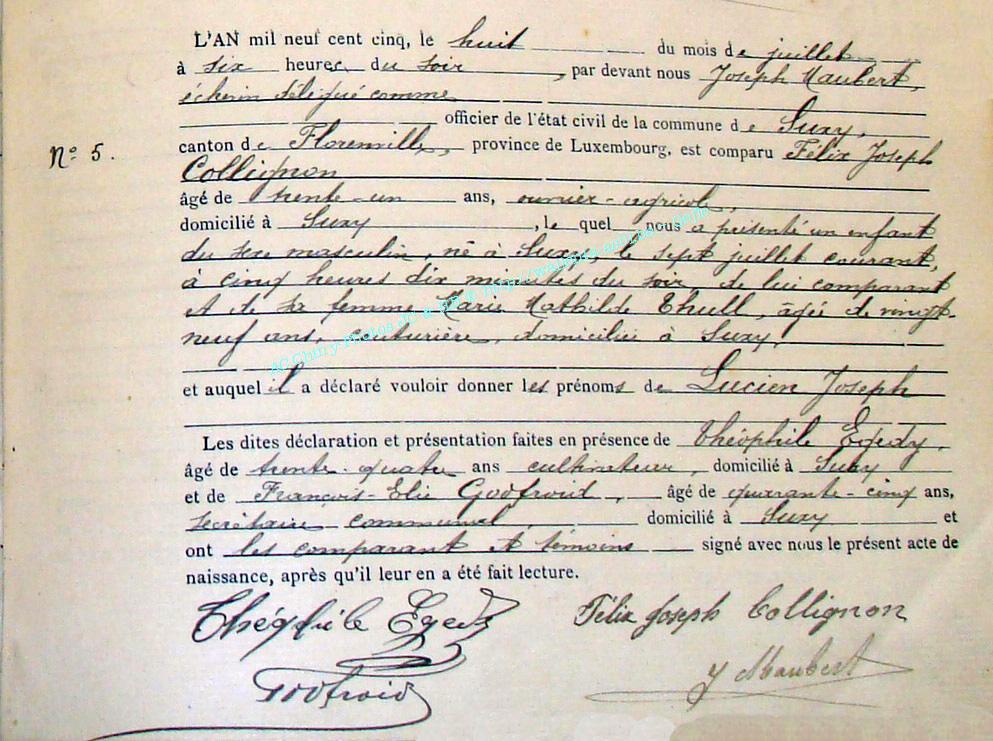 L'AN mil neuf cent cinq, le huit du mois de juillet
à six heures du soir, par devant nous Joseph Maubert,
échevin délégué comme
officier de l'état civil de la commune de Suxy,
N° 5.
canton de Florenville, province de Luxembourg, est comparu Félix Joseph
Collignon
âgé de trente-un ans, ouvrier-agricole,
domicilié à Suxy, le quel nous a présenté un enfant
du sexe masculin, né à Suxy, le sept juillet courant,
à cinq heures dix minutes du soir, de lui comparant
et de sa femme Marie Mathilde Thull, âgée de vingt-
neuf ans, couturière, domiciliée à Suxy,
et auquel il a déclaré vouloir donner les prénoms de Lucien Joseph
Les dites déclaration et présentation faites en présence de Théophile Egedy,
âgé de trente-quatre ans cultivateur, domicilié à Suxy
et de François-Elie Godfroid, âgé de quarante-cinq ans,
secrétaire communal domicilié à Suxy et
ont les comparant et témoins signé avec nous le présent acte de
naissance, après qu'il leur en a été fait lecture.
Théophile Egedy Félix Joseph Collignon
J Maubert
Godfroid